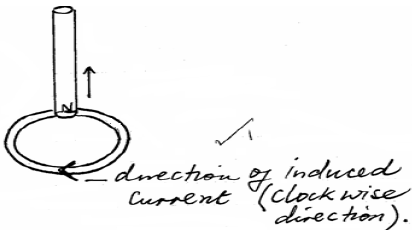 N
direction of induced
current (clockwise
direction).